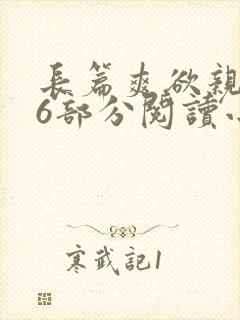 長篇爽欲親
6部分閱讀
寒武記1